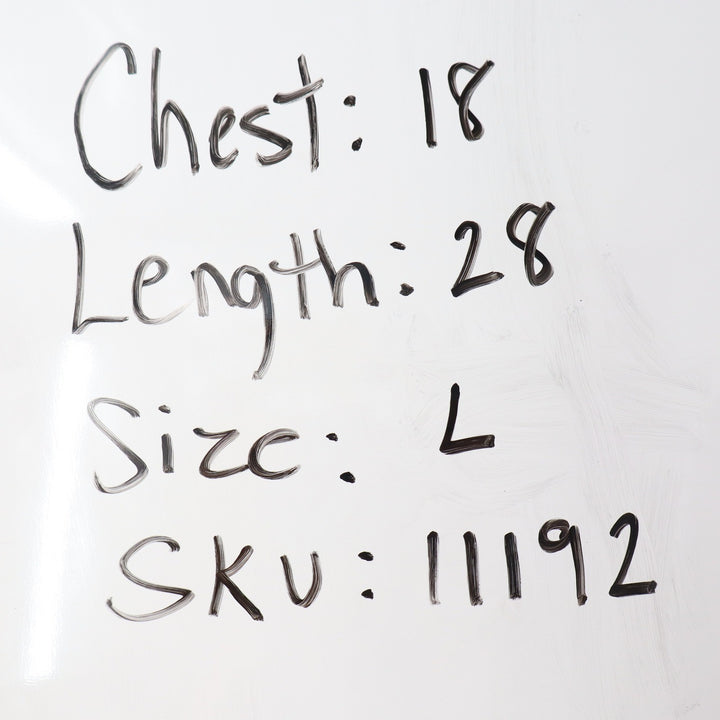 Chest: 18
Length: 28
Size: L
SKU: 11192